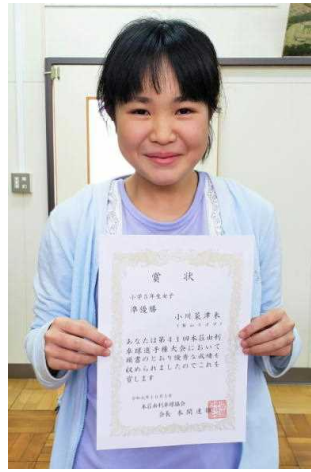 賞状
小学5年生女子
準優勝
小川菜津来
あなたは第43回本荘由利
卓球選手権大会において
頭書のとおり優秀な成績を
収められましたのでこれを
賞します
本荘由利卓球協会
会長